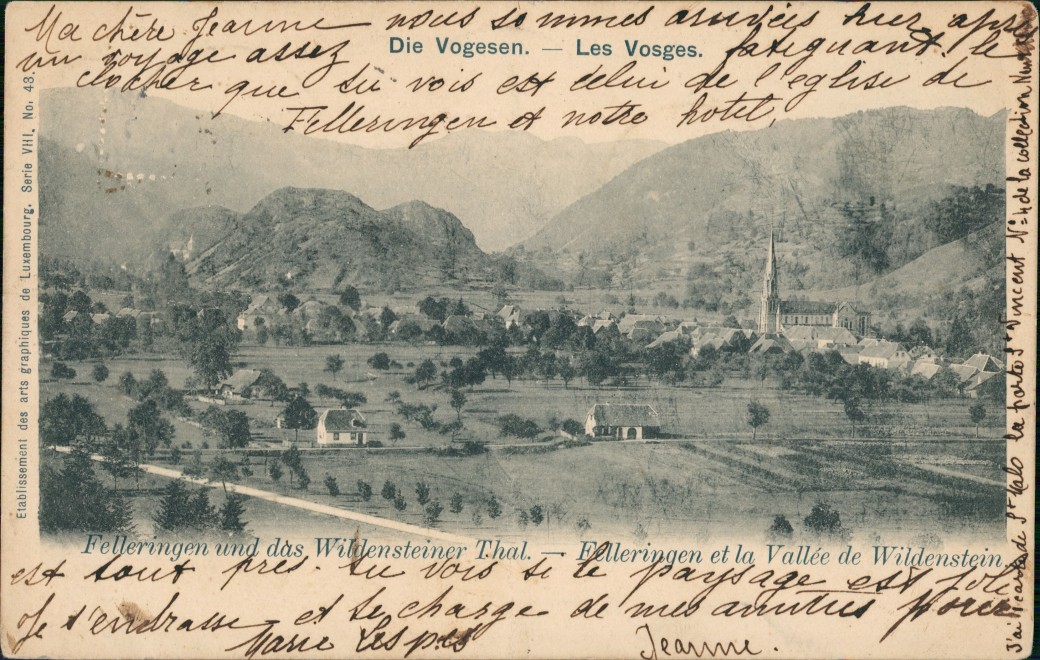 Ma chère Jeanne nous sommes arrivés hier après
un voyage assez fatiguant. le
Die Vogesen. — Les Vosges.
clocher que tu vois est celui de l'église de
Felleringen et notre hotel,
Etablissement des arts graphiques de Luxembourg. Serie VIII. No. 43.
Felleringen und das Wildensteiner Thal. — Felleringen et la Vallée de Wildenstein.
est tout près. tu vois si le paysage est joli
Je t'embrasse et te charge de mes amitiés pour
Marie
Jeanne.
J'ai 1 carte de St Malo la porte St Vincent No 4 de la collection